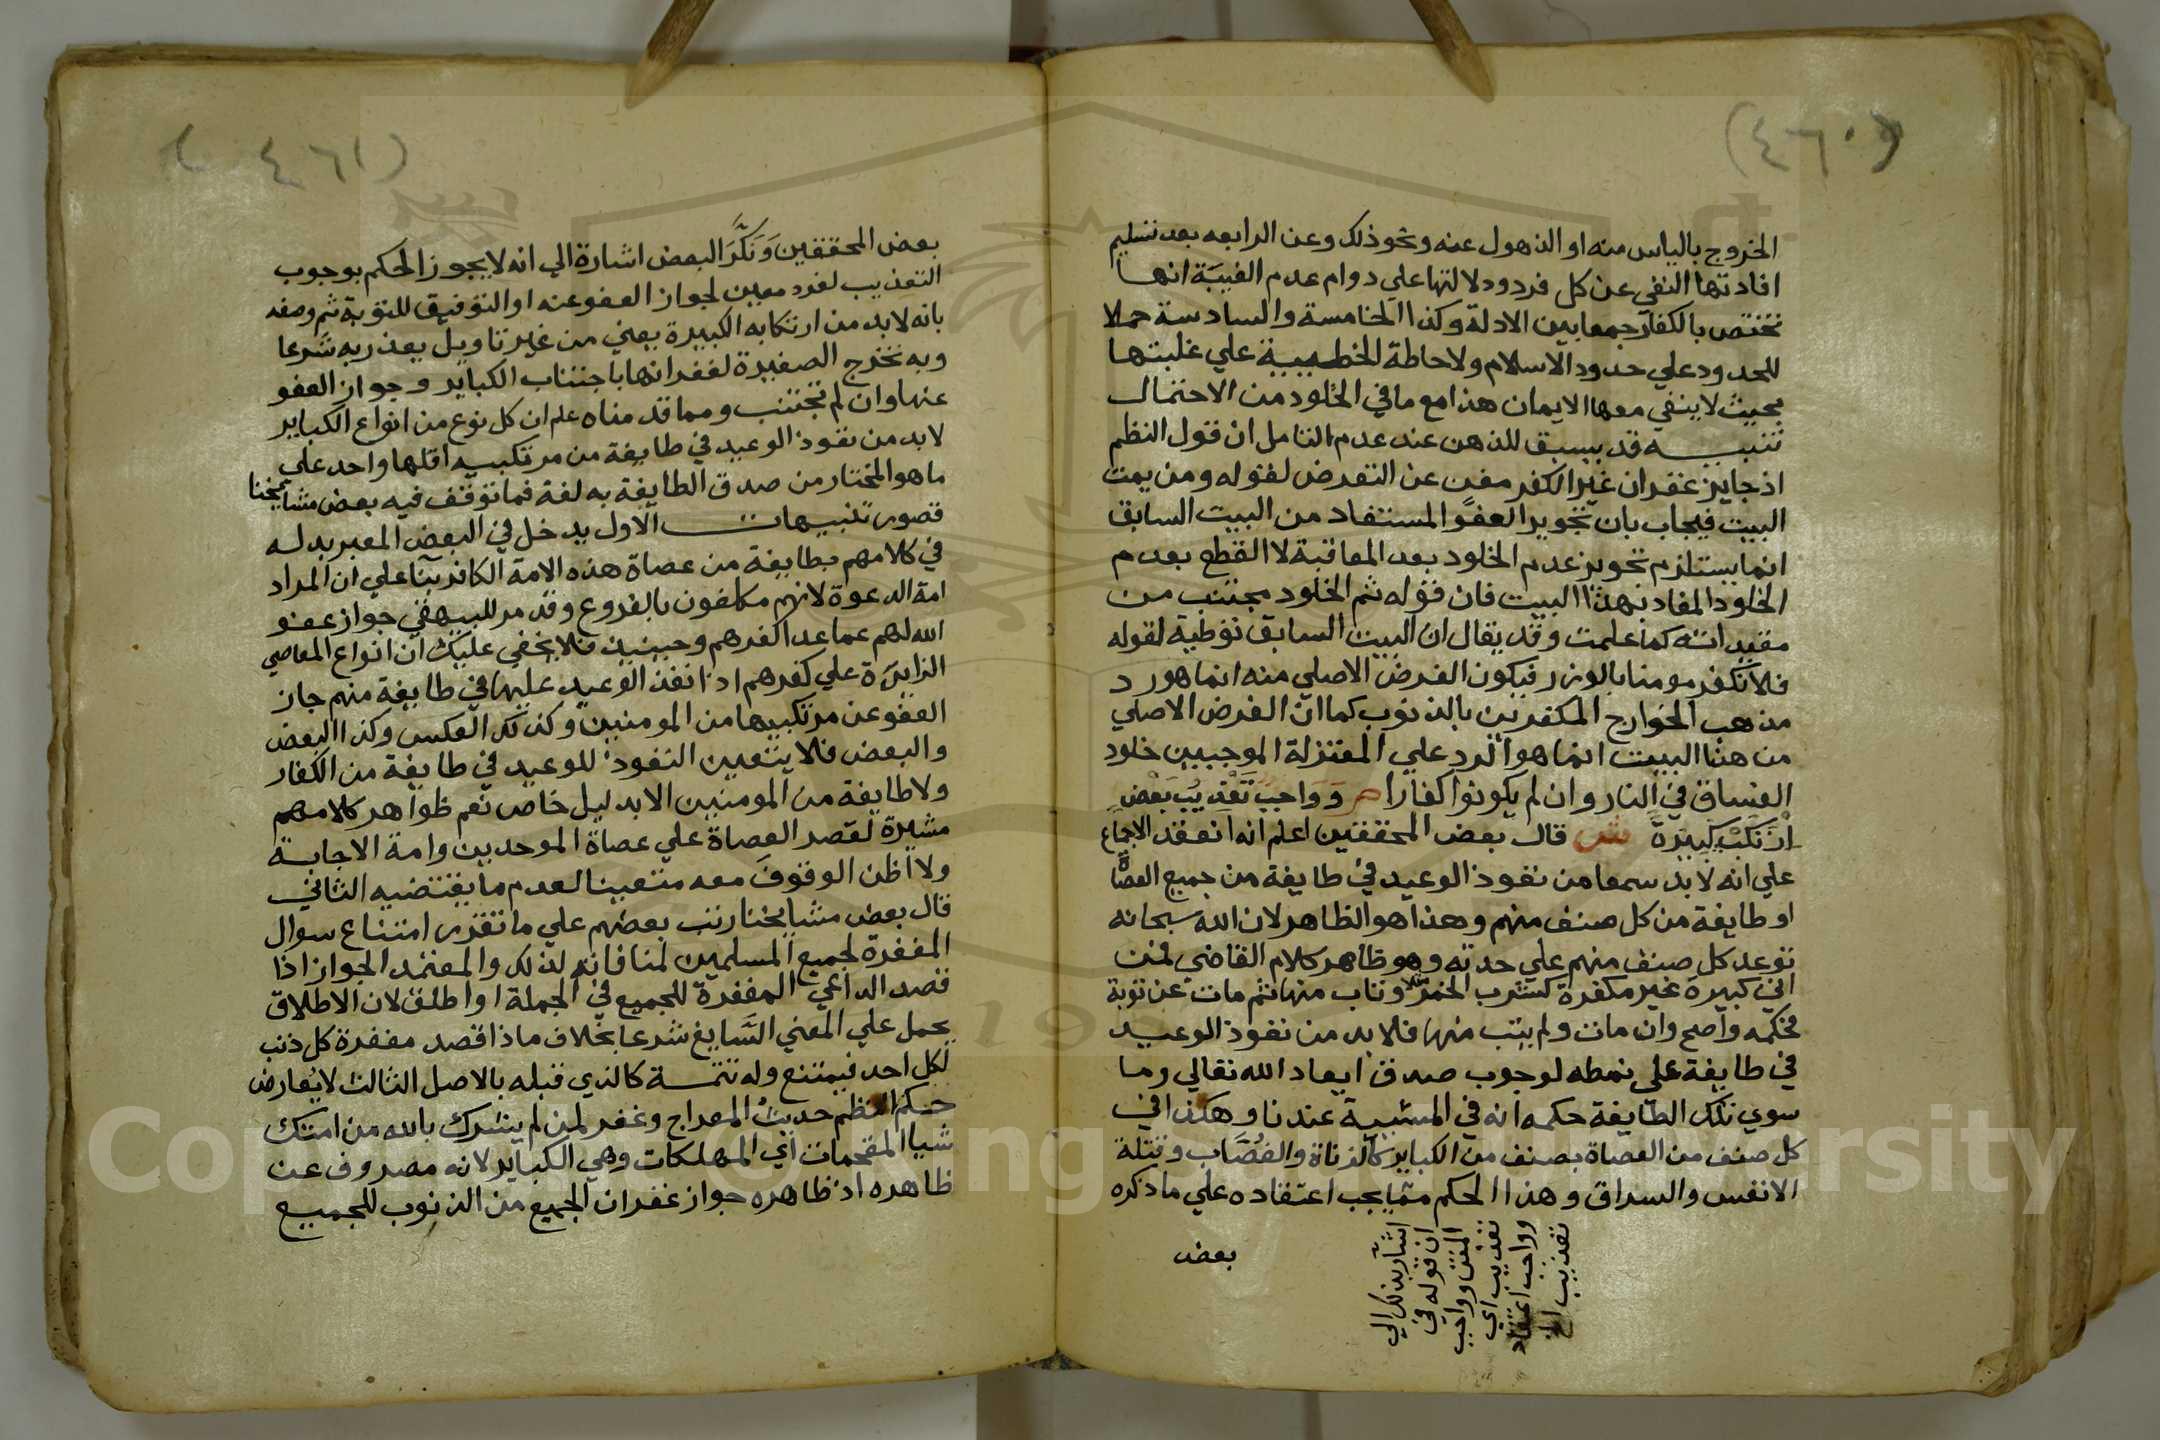 (٤٦٠)
الخروج بالياس منه او الذهول عنه ونحو ذلك وعن الرابعه بعد تسليم
افادتها النفي عن كل فرد ودلالتها علي دوام عدم الغيبة انها
تختص بالكفار جمعا بين الادلة وكذا الخامسة والسادسة حملا
للحدود علي حدود الاسلام ولاحاطة الخطيية علي غلبتها
بحيث لا يبقي معها الايمان هذا مع ما في الخلود من الاحتمال
تنبيه قد يسبق للذهن عند عدم التامل ان قول النظم
اذ جايز غفران غير الكفر مغن عن التعرض لقوله ومن يمت
البيت فيجاب بان تجويز العفو المستفاد من البيت السابق
انما يستلزم تجويز عدم الخلود بعد المعاقبة لا القطع بعدم
الخلود المفاد بهذا البيت فان قوله ثم الخلود مجتنب من
مفيداته كما علمت وقد يقال ان البيت السابق توطية لقوله
فلا نكفر مومنا بالوزر فيكون الغرض الاصلي منه انما هو رد
مذهب الخوارج المكفرين بالذنوب كما ان الغرض الاصلي
من هذا البيت انما هو الرد علي المعتزلة الموجبين خلود
الفساق في النار وان لم يكونوا كفارا ص وَوَاجِبٌ تَعْذِيبُ بَعْضٍ
ارْتَكَبْ كَبِيرَةً ش قال بعض المحققين اعلم انه انعقد الاجماع
علي انه لا بد سمعا من نفوذ الوعيد في طايفة من جميع العصاة
او طايفة من كل صنف منهم وهذا هو الظاهر لان الله سبحانه
توعد كل صنف منهم علي حدته وهو ظاهر كلام القاضي فمن
اتي كبيرة غير مكفرة كشرب الخمر مثلا وتاب منها ثم مات عن توبة
فحكمه واضح وان مات ولم يتب منها فلا بد من نفوذ الوعيد
في طايفة علي نمطه لوجوب صدق ايعاد الله تعالي وما
سوي تلك الطايفة حكمه انه في المشيية عندنا وهكذا في
كل صنف من العصاة بصنف من الكباير كالزناة والغُصَّاب وقتلة
الانفس والسراق وهذا الحكم مما يجب اعتقاده علي ما ذكره
بعض
اشار بذلك الي
ان قوله في
المتن وواجب
تعذيب اي
وواجب اعتقاد
تعذيب الخ
(٤٦١)
بعض المحققين وَنَكَّرَ البعض اشارة الي انه لا يجوز الحكم بوجوب
التعذيب لفرد معين لجواز العفو عنه او التوفيق للتوبة ثم وصفه
بانه لا بد من ارتكابه الكبيرة يعني من غير تاويل يعذر به شرعا
وبه تخرج الصغيرة لغفرانها باجتناب الكباير وجواز العفو
عنها وان لم تجتنب ومما قدمناه علم ان كل نوع من انواع الكباير
لا بد من نفوذ الوعيد في طايفة من مرتكبيه اقلها واحد علي
ما هو المختار من صدق الطايفة به لغة فما توقف فيه بعض مشايخنا
قصور تنبيهات الاول يدخل في البعض المعبر بدله
في كلامهم بطايفة من عصاة هذه الامة الكافر بنا علي ان المراد
امة الدعوة لانهم مكلفون بالفروع وقد مر للبيهقي جواز عفو
الله لهم عما عدا كفرهم وحينيذ فلا يخفي عليك ان انواع المعاصي
الزايدة علي كفرهم اذا نفذ الوعيد عليها في طايفة منهم جاز
العفو عن مرتكبيها من المومنين وكذلك العكس وكذا البعض
والبعض فلا يتعين النفوذ للوعيد في طايفة من الكفار
ولا طايفة من المومنين الا بدليل خاص نعم ظواهر كلامهم
مشيرة لقصر العصاة علي عصاة الموحدين وامة الاجابة
ولا اظن الوقوف معه متعينا لعدم ما يقتضيه الثاني
قال بعض مشايخنا رتب بعضهم علي ما تقرر امتناع سوال
المغفرة لجميع المسلمين لمنافاته لذلك والمعتمد الجواز اذا
قصد الداعي المغفرة للجميع في الجملة او اطلق لان الاطلاق
يحمل علي المعني السَّايغ شرعا بخلاف ما اذا قصد مغفرة كل ذنب
لكل احد فيمتنع وله تتمة كالذي قبله بالاصل الثالث لا يُعارض
حكم النظم حديث المعراج وغفر لمن لم يشرك بالله من امتك
شيا المقحمات اي المهلكات وهي الكباير لانه مصروف عن
ظاهره اذ ظاهره جواز غفران الجميع من الذنوب للجميع
Copyright © King Saud University